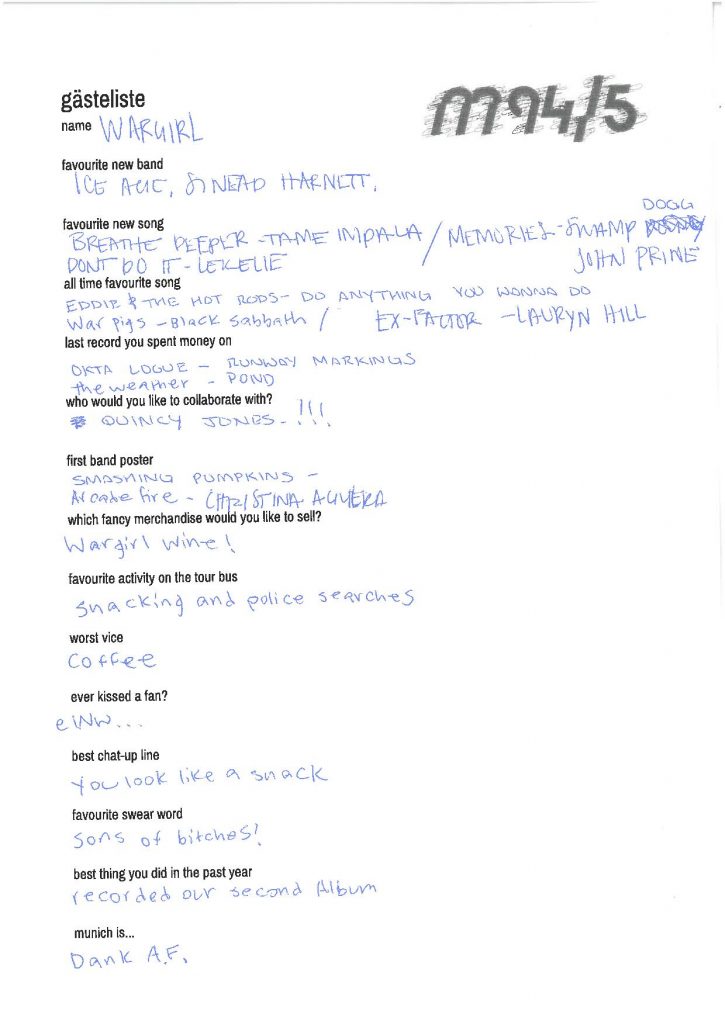 gästeliste
m94/5
name WARGIRL
favourite new band
ICE AGE, SINEAD HARNETT.
favourite new song
DOGG
BREATHE DEEPER - TAME IMPALA / MEMORIES - SWAMP
DONT DO IT - LEKELIE
JOHN PRINE
all time favourite song
EDDIE & THE HOT RODS - DO ANYTHING YOU WANNA DO
War pigs - Black Sabbath / EX-FACTOR - LAURYN HILL
last record you spent money on
OKTA LOGUE - RUNWAY MARKINGS
the weather - POND
who would you like to collaborate with?
QUINCY JONES - !!!
first band poster
SMASHING PUMPKINS -
Arcade fire - CHRISTINA AGUILERA
which fancy merchandise would you like to sell?
Wargirl wine!
favourite activity on the tour bus
snacking and police searches
worst vice
Coffee
ever kissed a fan?
eWW...
best chat-up line
You look like a snack
favourite swear word
sons of bitches!
best thing you did in the past year
recorded our second Album
munich is...
Dank A.F.